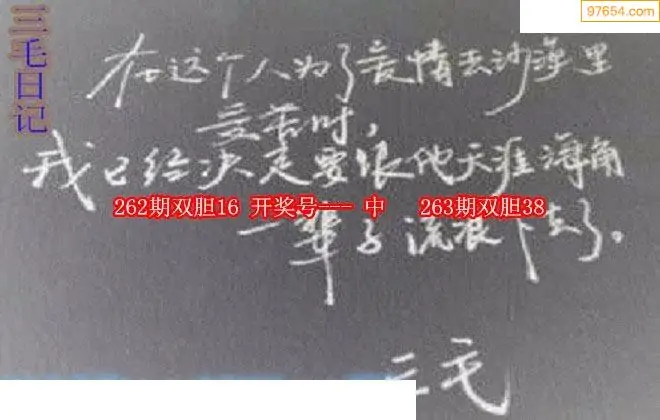 三毛日记
97654.com
在这个人为了爱情去沙漠里
受苦时，
我已经决定要跟他天涯海角
262期双胆16 开奖号--- 中 263期双胆38
一辈子流浪下去了。
三毛